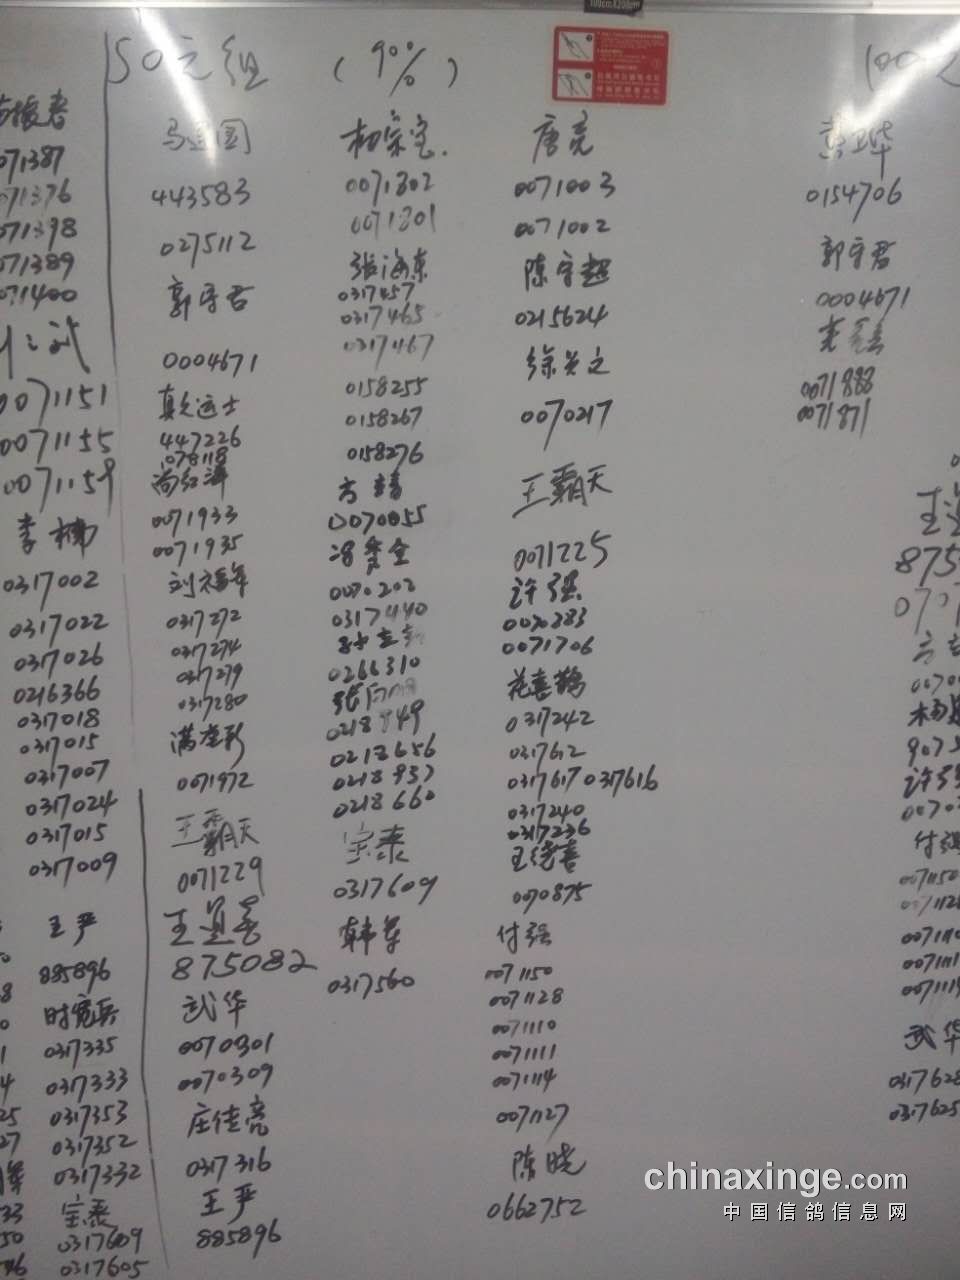 50元组 (90%)
071387
071376
071398
071389
071400
0071151
0071155
0071159
李楠
0317002
0317022
0317026
0216366
0317018
0317015
0317007
0317024
0317015
0317009
王严
885896
时宽兵
0317335
0317333
0317353
0317352
0317332
宝泰
0317609
0317605
443583
0275112
郭守君
0004671
447226
尚红涛
0071933
0071935
刘福年
0317272
0317274
0317279
0317280
0071972
王霸天
0071229
875082
武华
0070301
0070309
庄佳亮
0317316
王严
885896
杨宗宝
0071802
0071801
张海东
0317457
0317465
0317467
0158255
0158267
0158276
方喜
0070055
冯贵全
0070202
0317440
0266310
0218949
0218656
0218957
0218660
宝泰
0317609
韩军
0317560
唐亮
0071003
0071002
陈守超
0215624
徐兴之
0070217
王霸天
0071225
许强
0070383
0071706
花喜鹊
0317242
0317612
0317617 0317616
0317240
0317236
王德喜
0070875
付强
0071150
0071128
0071110
0071111
0071114
0071127
陈晓
0662752
0154706
郭守君
0004671
0071888
0071871
武华
chinaxinge.com
中国信鸽信息网